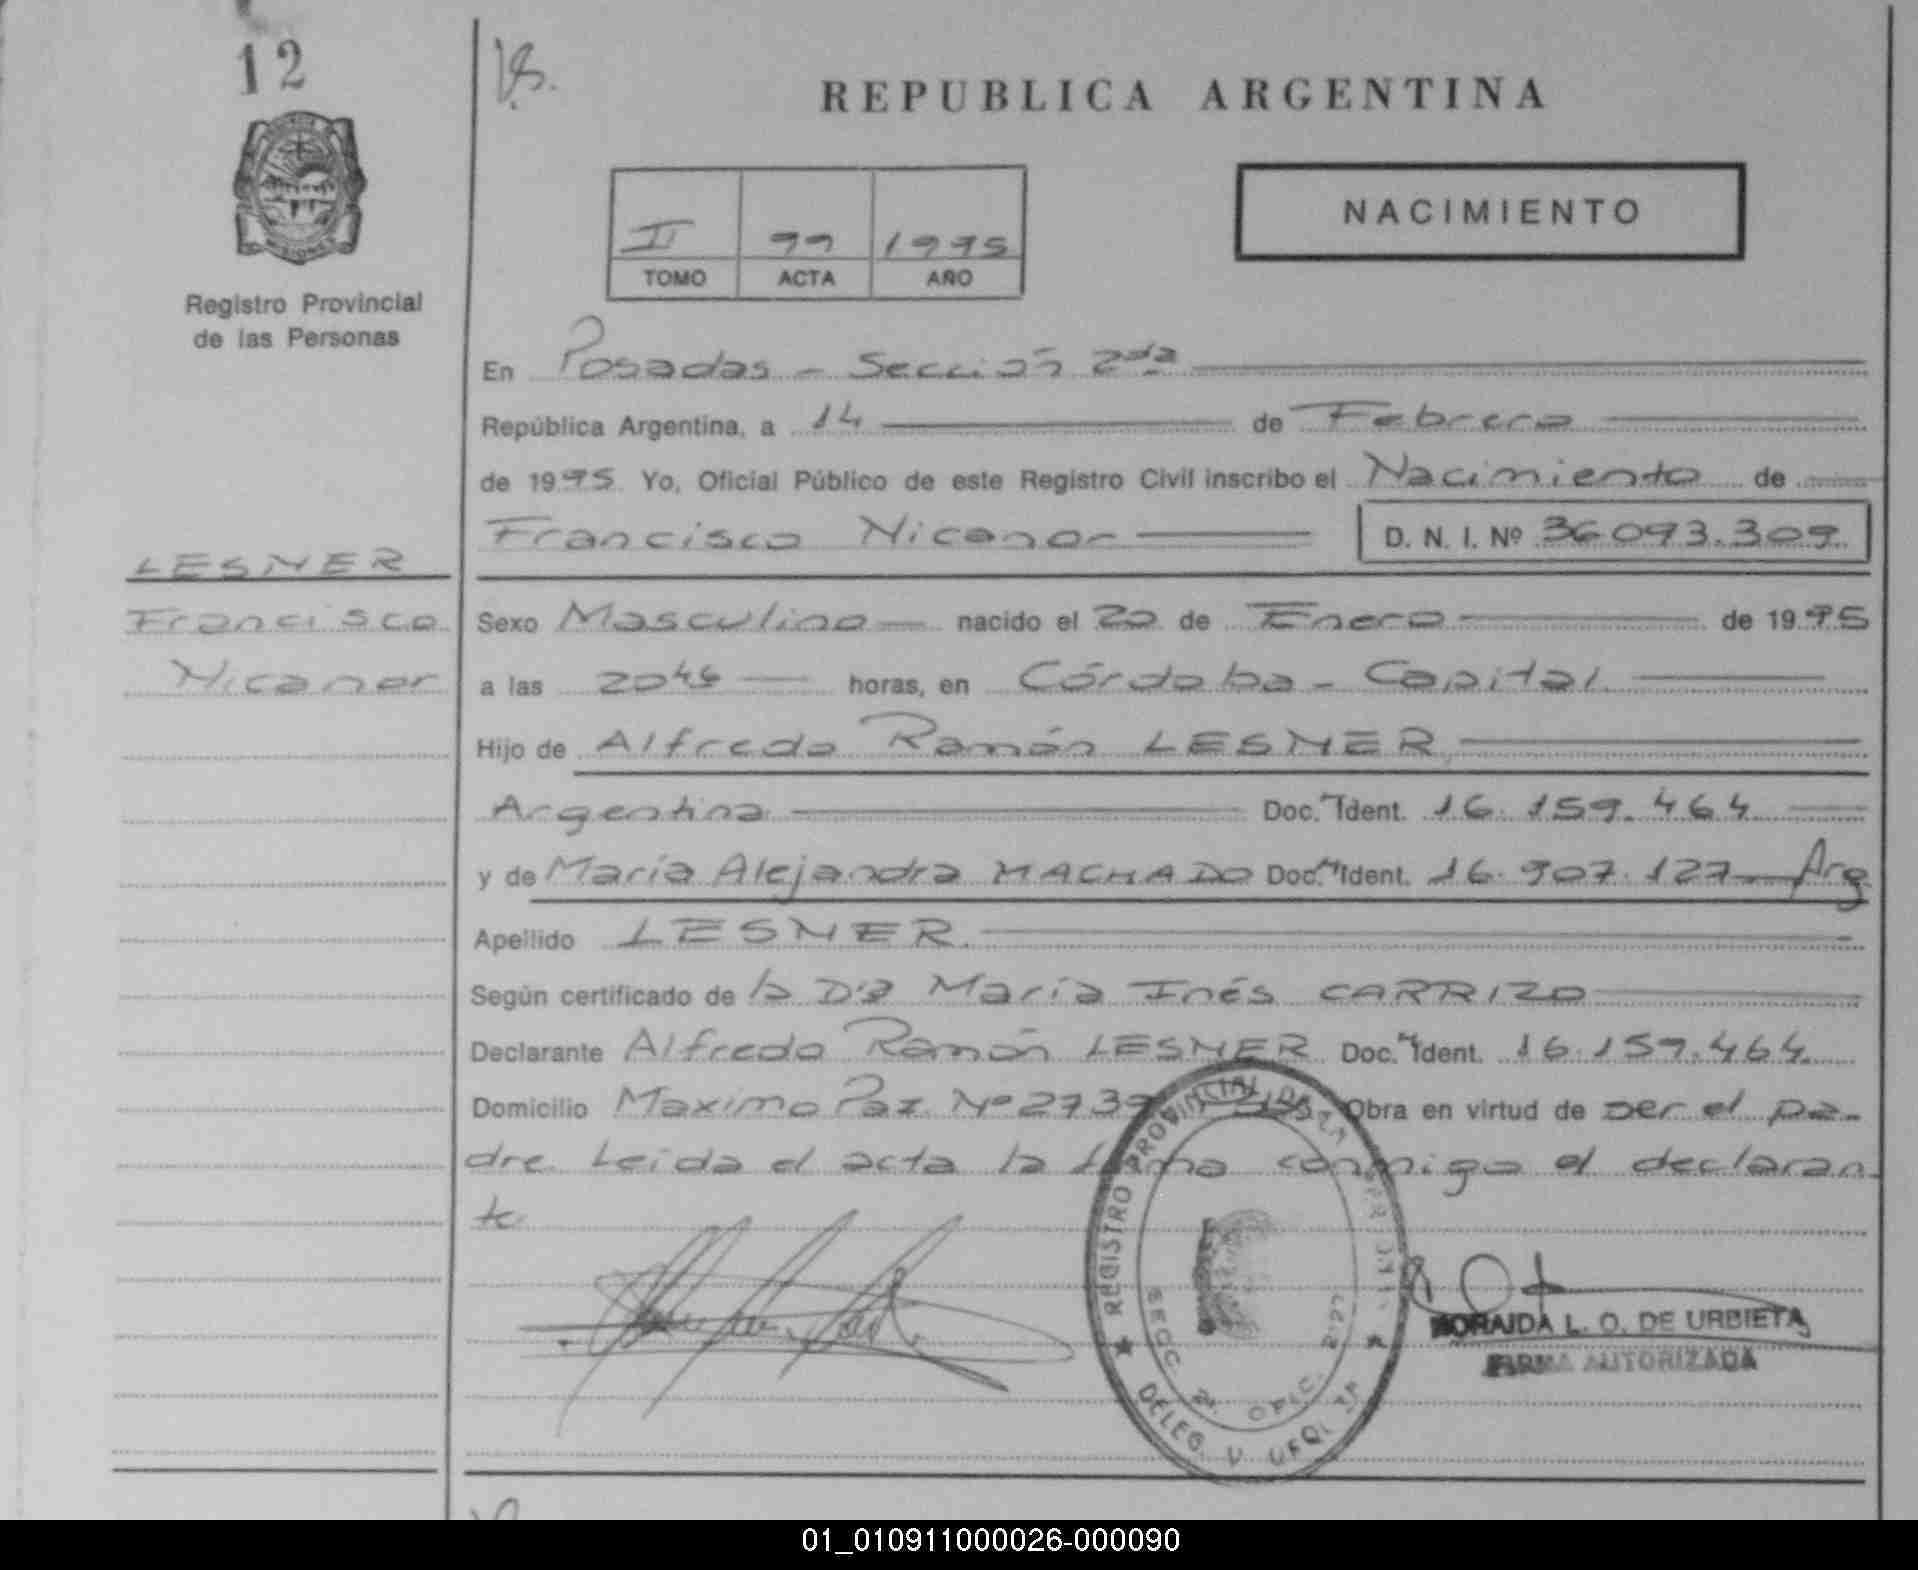 12
REPUBLICA ARGENTINA
NACIMIENTO
II 99 1995
TOMO ACTA AÑO
Registro Provincial
de las Personas
En Posadas - Sección 2da
República Argentina, a 14 de Febrero
de 1995 Yo, Oficial Público de este Registro Civil inscribo el Nacimiento de
Francisco Nicanor D. N. I. Nº 36093.309
LESNER
Francisco
Nicanor
Sexo Masculino nacido el 20 de Enero de 1995
a las horas, en Córdoba - Capital
Hijo de Alfredo Ramón LESNER
Argentina Doc. Ident. 16.159.464
y de María Alejandra MACHADO Doc. Ident. 16.907.127 Arg
Apellido LESNER
Según certificado de la Dra María Inés CARRIZO
Declarante Alfredo Ramón LESNER Doc. Ident. 16.159.464
Domicilio Maximo Paz Nº Obra en virtud de ser el pa-
dre. Leida el acta la firma conmigo el declaran-
te
REGISTRO PROVINCIAL DE LA
SECC. 2ª OFIC.
DELEG. V.
L. O. DE URBIETA
FIRMA AUTORIZADA
01_010911000026-000090